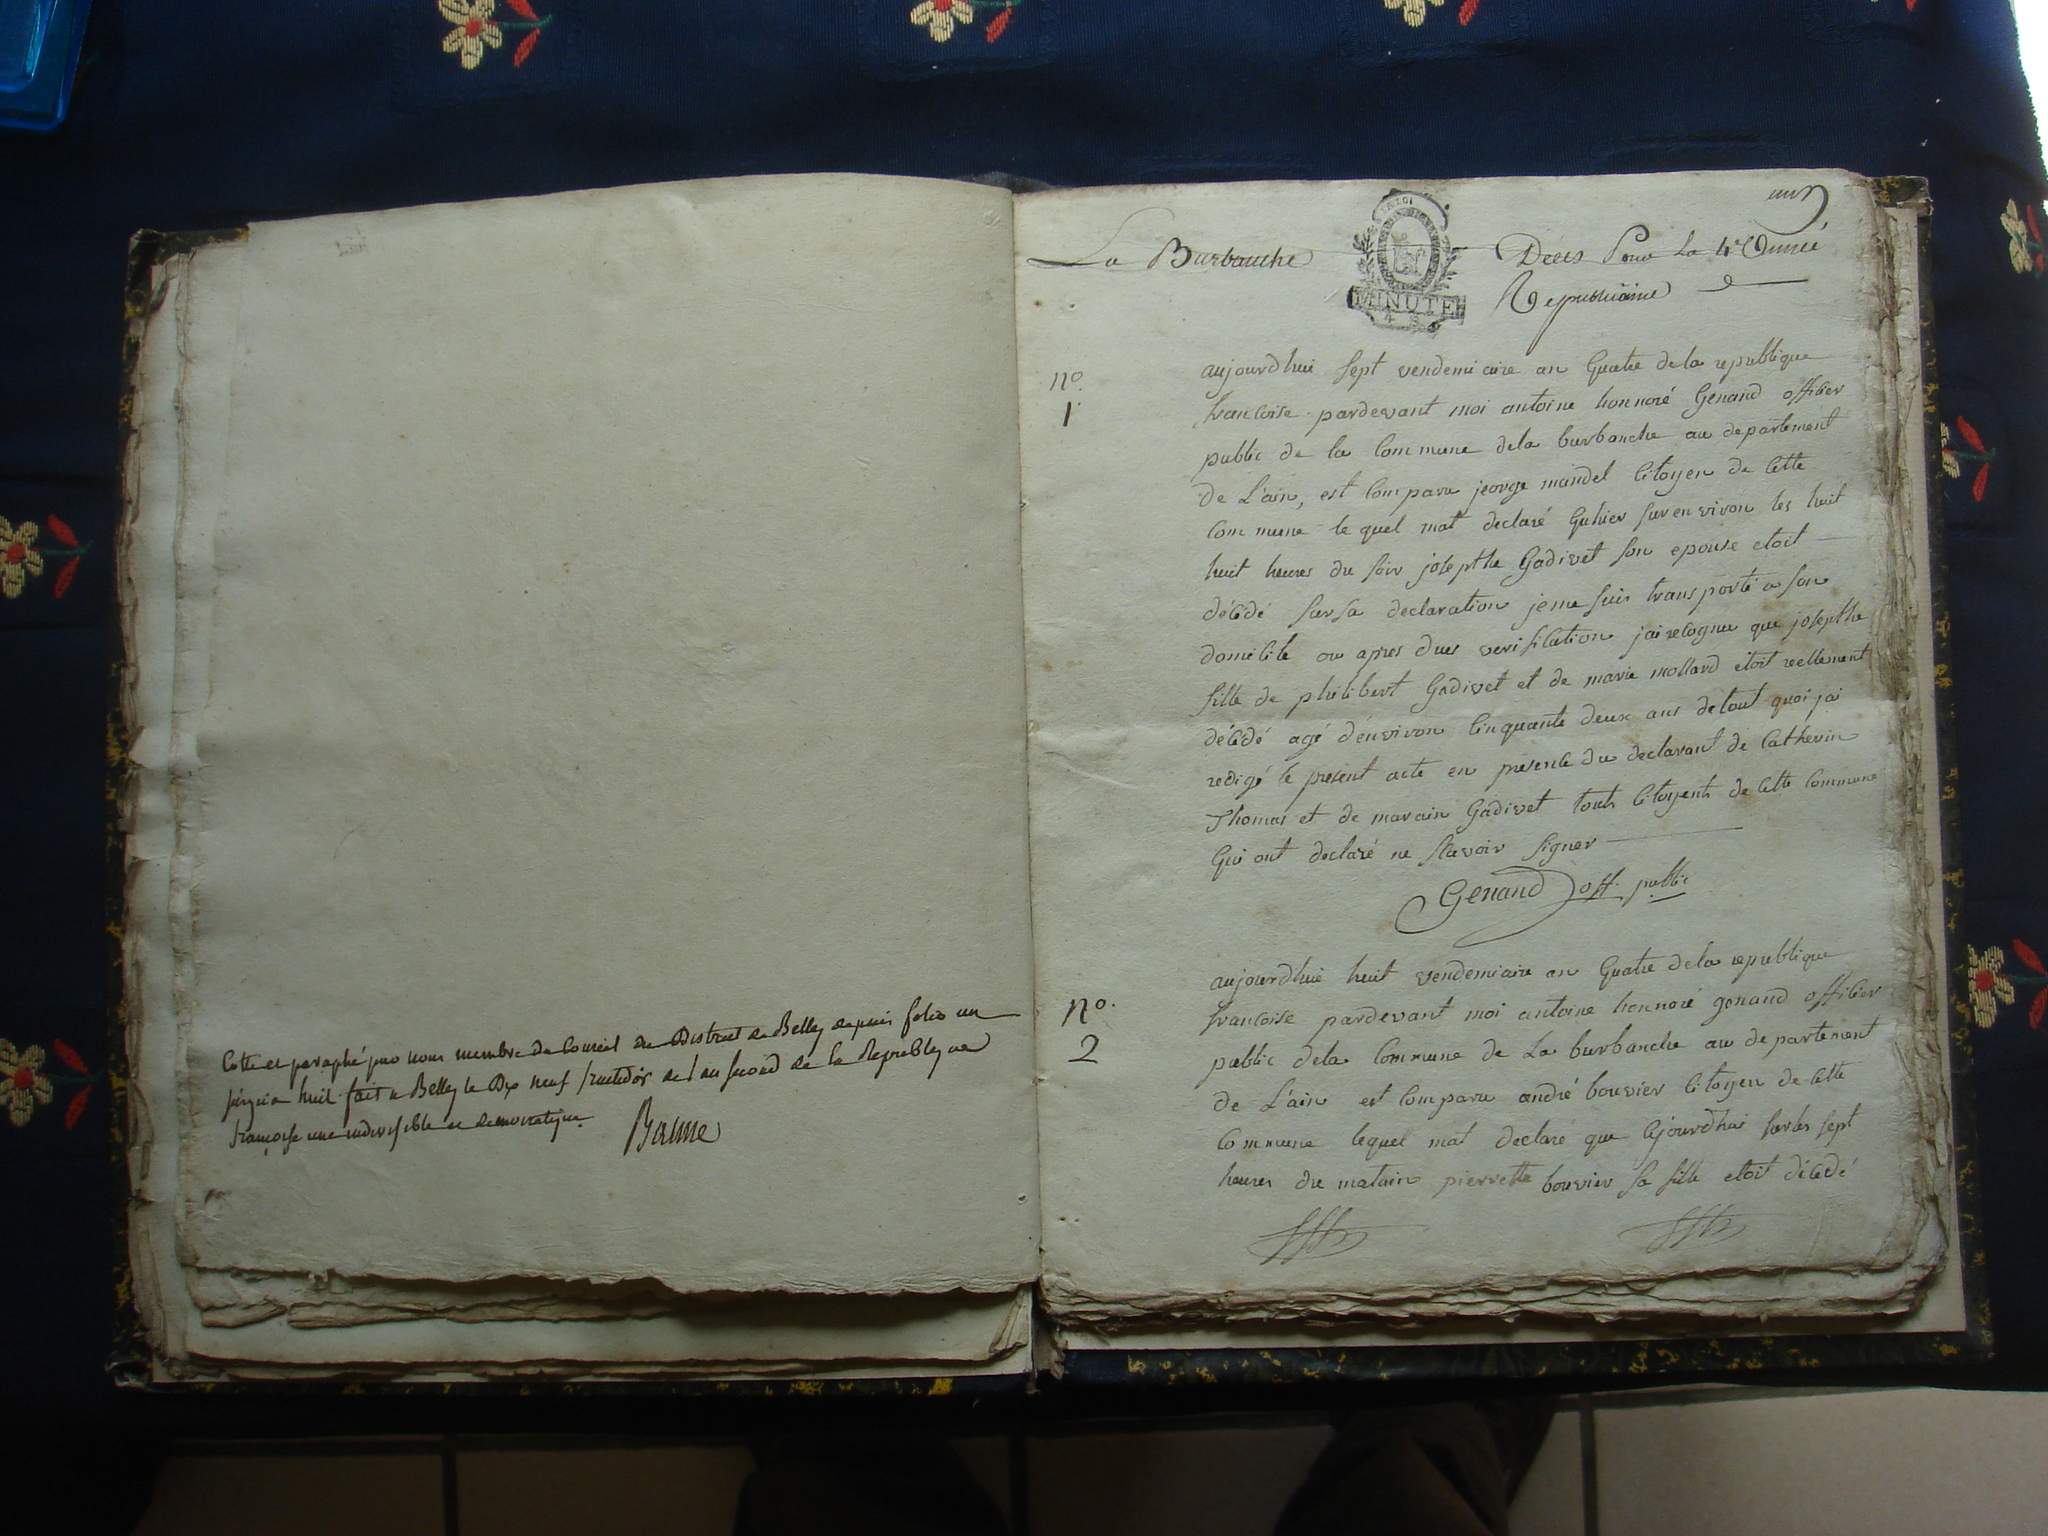 Cotté et paraphé par nous membre du Conseil du District de Belley depuis folio un
jusqu'a huit fait a Belley le Dix neuf fructidor de l'an second de la Republique
françoise une indivisible et democratique.
Baune
un
La Burbanche
Deces Pour La 4e Année
Republicaine
MINUTE
4 S
no.
1
aujourdhui sept vendemiaire an Quatre dela republique
francoise pardevant moi antoine honnoré Genand officier
public de la Commune dela burbanche au departement
de L'ain, est Comparu jeorge mandel Citoyen de Cette
Commune le quel mat declaré Quhier sur environ les huit
huit heures du soir josepthe Gadivet son epouse etoit
décédé sur sa declaration je me suis transporté a son
domicile ou apres dues verification jai recognu que josepthe
fille de philibert Gadivet et de marie mollard etoit reellement
décédé agé d'environ Cinquante deux ans detout quoi jai
redigé le present acte en présence du declarant de Catherin
Thomas et de marain Gadivet touts Citoyents de Cette Commune
Qui ont declaré ne scavoir signer
Genand off. public
no.
2
aujourdhui huit vendemiaire an Quatre dela republique
francoise pardevant moi antoine honnoré genand officier
public dela Commune de La burbanche au departement
de L'ain est Comparu andré bouvier Citoyen de Cette
Commune lequel mat declaré que Ajourdhui sur les sept
heures du matain pierrette bouvier sa fille etoit décédé